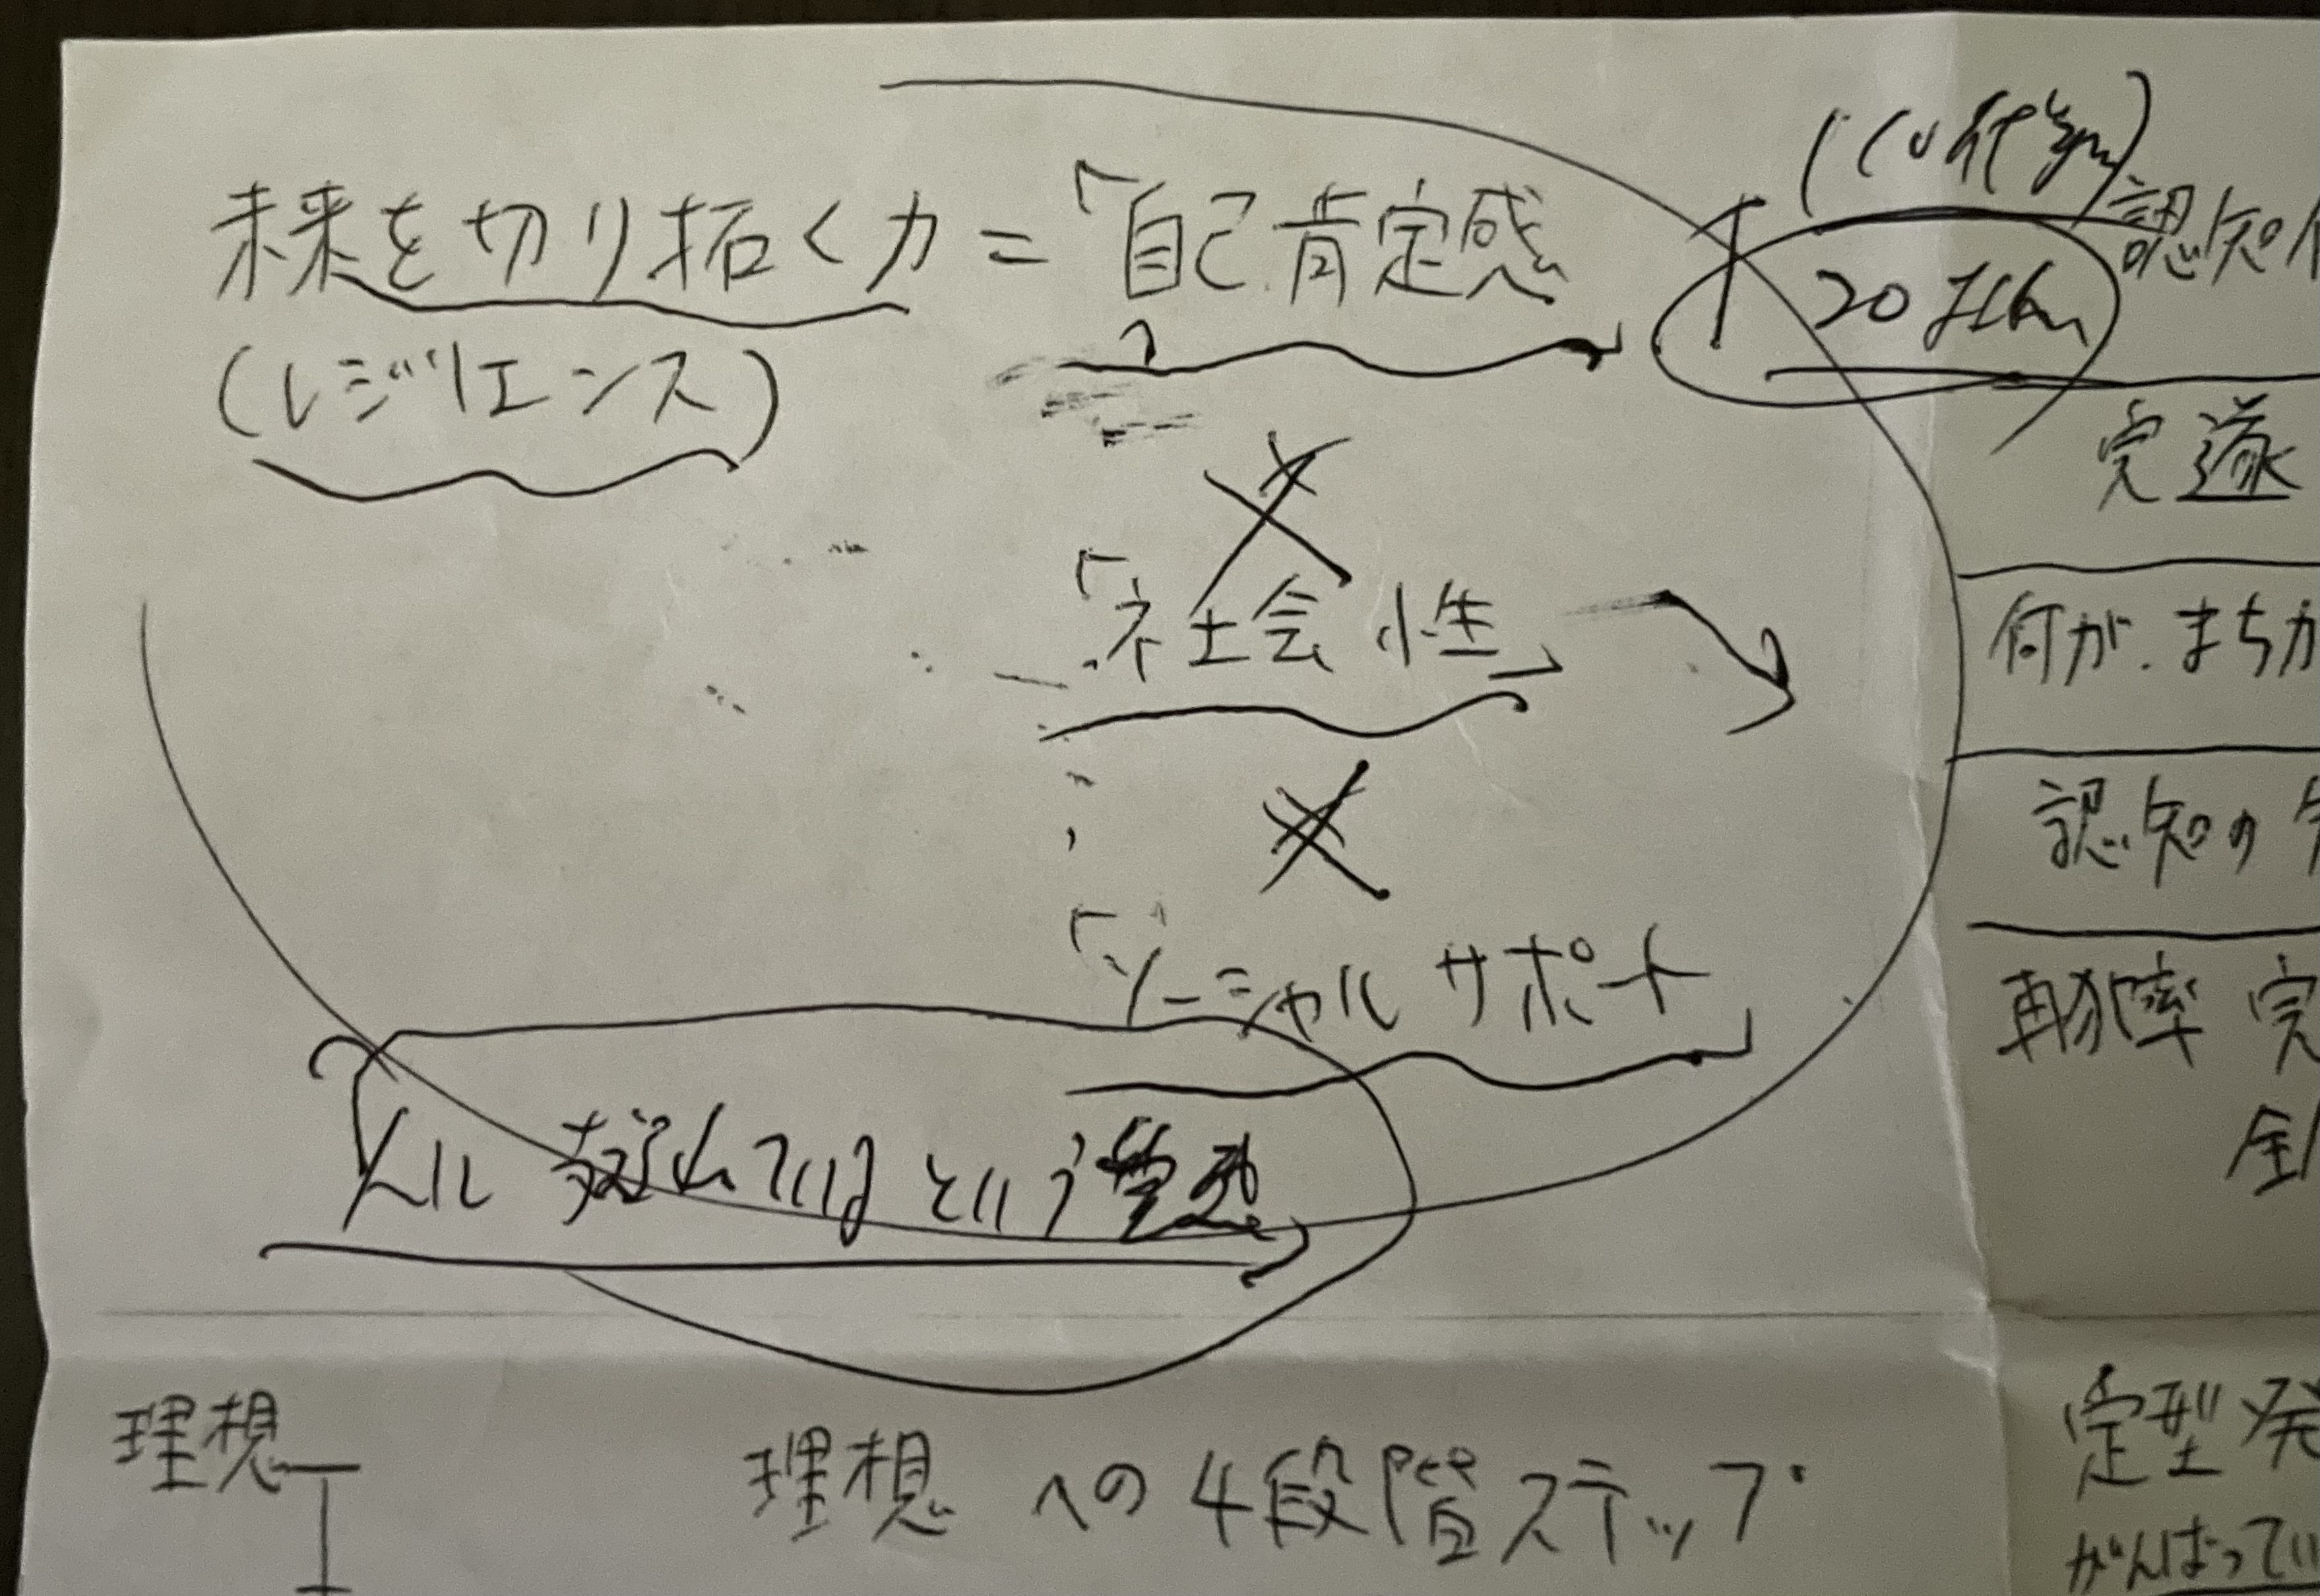 未来を切り拓く力=「自己肯定感」
(レジリエンス)
×
「社会性」
×
「ソーシャルサポート」
人に 支えられているという実感
理想
理想への4段階ステップ
(10代
20
認知
完遂
何が.まちが
認知の
再犯率 完
全
定型発
がんばってい